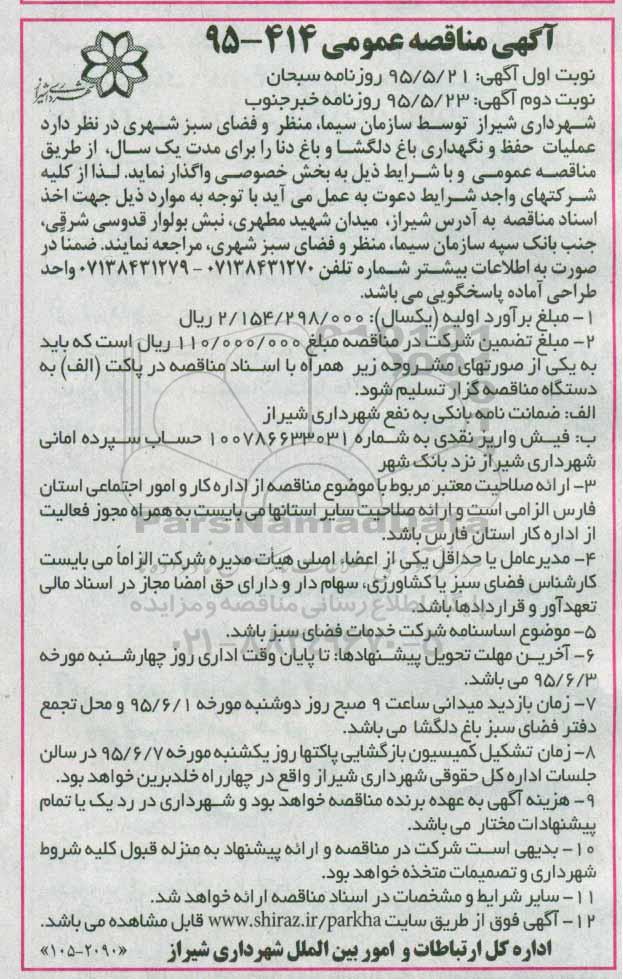 آگهی مناقصه عمومی ۴۱۴-۹۵
شهرداری شیراز
نوبت اول آگهی: ۹۵/۵/۲۱ روزنامه سبحان
نوبت دوم آگهی: ۹۵/۵/۲۳ روزنامه خبرجنوب
شهرداری شیراز توسط سازمان سیما، منظر و فضای سبز شهری در نظر دارد
عملیات حفظ و نگهداری باغ دلگشا و باغ دنا را برای مدت یک سال، از طریق
مناقصه عمومی و با شرایط ذیل به بخش خصوصی واگذار نماید. لذا از کلیه
شرکتهای واجد شرایط دعوت به عمل می آید با توجه به موارد ذیل جهت اخذ
اسناد مناقصه به آدرس شیراز، میدان شهید مطهری، نبش بولوار قدوسی شرقی،
جنب بانک سپه سازمان سیما، منظر و فضای سبز شهری، مراجعه نمایند. ضمنا در
صورت به اطلاعات بیشتر شماره تلفن ۰۷۱۳۸۴۳۱۲۷۰ - ۰۷۱۳۸۴۳۱۲۷۹ واحد
طراحی آماده پاسخگویی می باشد.
۱- مبلغ برآورد اولیه (یکسال): ۲/۱۵۴/۲۹۸/۰۰۰ ریال
۲- مبلغ تضمین شرکت در مناقصه مبلغ ۱۱۰/۰۰۰/۰۰۰ ریال است که باید
به یکی از صورتهای مشروحه زیر همراه با اسناد مناقصه در پاکت (الف) به
دستگاه مناقصه گزار تسلیم شود.
الف: ضمانت نامه بانکی به نفع شهرداری شیراز
ب: فیش واریز نقدی به شماره ۱۰۰۷۸۶۶۳۳۰۳۱ حساب سپرده امانی
شهرداری شیراز نزد بانک شهر
۳- ارائه صلاحیت معتبر مربوط با موضوع مناقصه از اداره کار و امور اجتماعی استان
فارس الزامی است و ارائه صلاحیت سایر استانها می بایست به همراه مجوز فعالیت
از اداره کار استان فارس باشد.
ParsNamadData
۴- مدیرعامل یا حداقل یکی از اعضاء اصلی هیأت مدیره شرکت الزاماً می بایست
کارشناس فضای سبز یا کشاورزی، سهام دار و دارای حق امضا مجاز در اسناد مالی
تعهدآور و قراردادها باشد.
پایگاه اطلاع رسانی مناقصه و مزایده
۵- موضوع اساسنامه شرکت خدمات فضای سبز باشد.
۰۲۱-۸۸۳۴۹۶۷۰-۵
۶- آخرین مهلت تحویل پیشنهادها: تا پایان وقت اداری روز چهارشنبه مورخه
۹۵/۶/۳ می باشد.
۷- زمان بازدید میدانی ساعت ۹ صبح روز دوشنبه مورخه ۹۵/۶/۱ و محل تجمع
دفتر فضای سبز باغ دلگشا می باشد.
۸- زمان تشکیل کمیسیون بازگشایی پاکتها روز یکشنبه مورخه ۹۵/۶/۷ در سالن
جلسات اداره کل حقوقی شهرداری شیراز واقع در چهارراه خلدبرین خواهد بود.
۹- هزینه آگهی به عهده برنده مناقصه خواهد بود و شهرداری در رد یک یا تمام
پیشنهادات مختار می باشد.
۱۰- بدیهی است شرکت در مناقصه و ارائه پیشنهاد به منزله قبول کلیه شروط
شهرداری و تصمیمات متخذه خواهد بود.
۱۱- سایر شرایط و مشخصات در اسناد مناقصه ارائه خواهد شد.
۱۲- آگهی فوق از طریق سایت www.shiraz.ir/parkha قابل مشاهده می باشد.
اداره کل ارتباطات و امور بین الملل شهرداری شیراز «۲۰۹۰-۱۰۵»